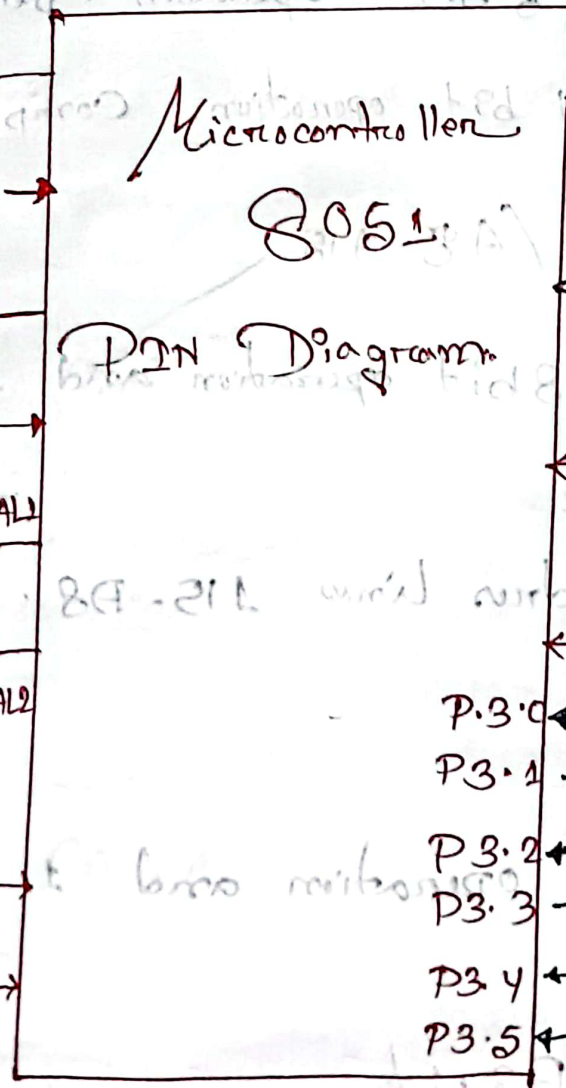 Microcontroller
8051
PIN Diagram
AL1
AL2
P.3.0
P3.1
P3.2
P3.3
P3.4
P3.5